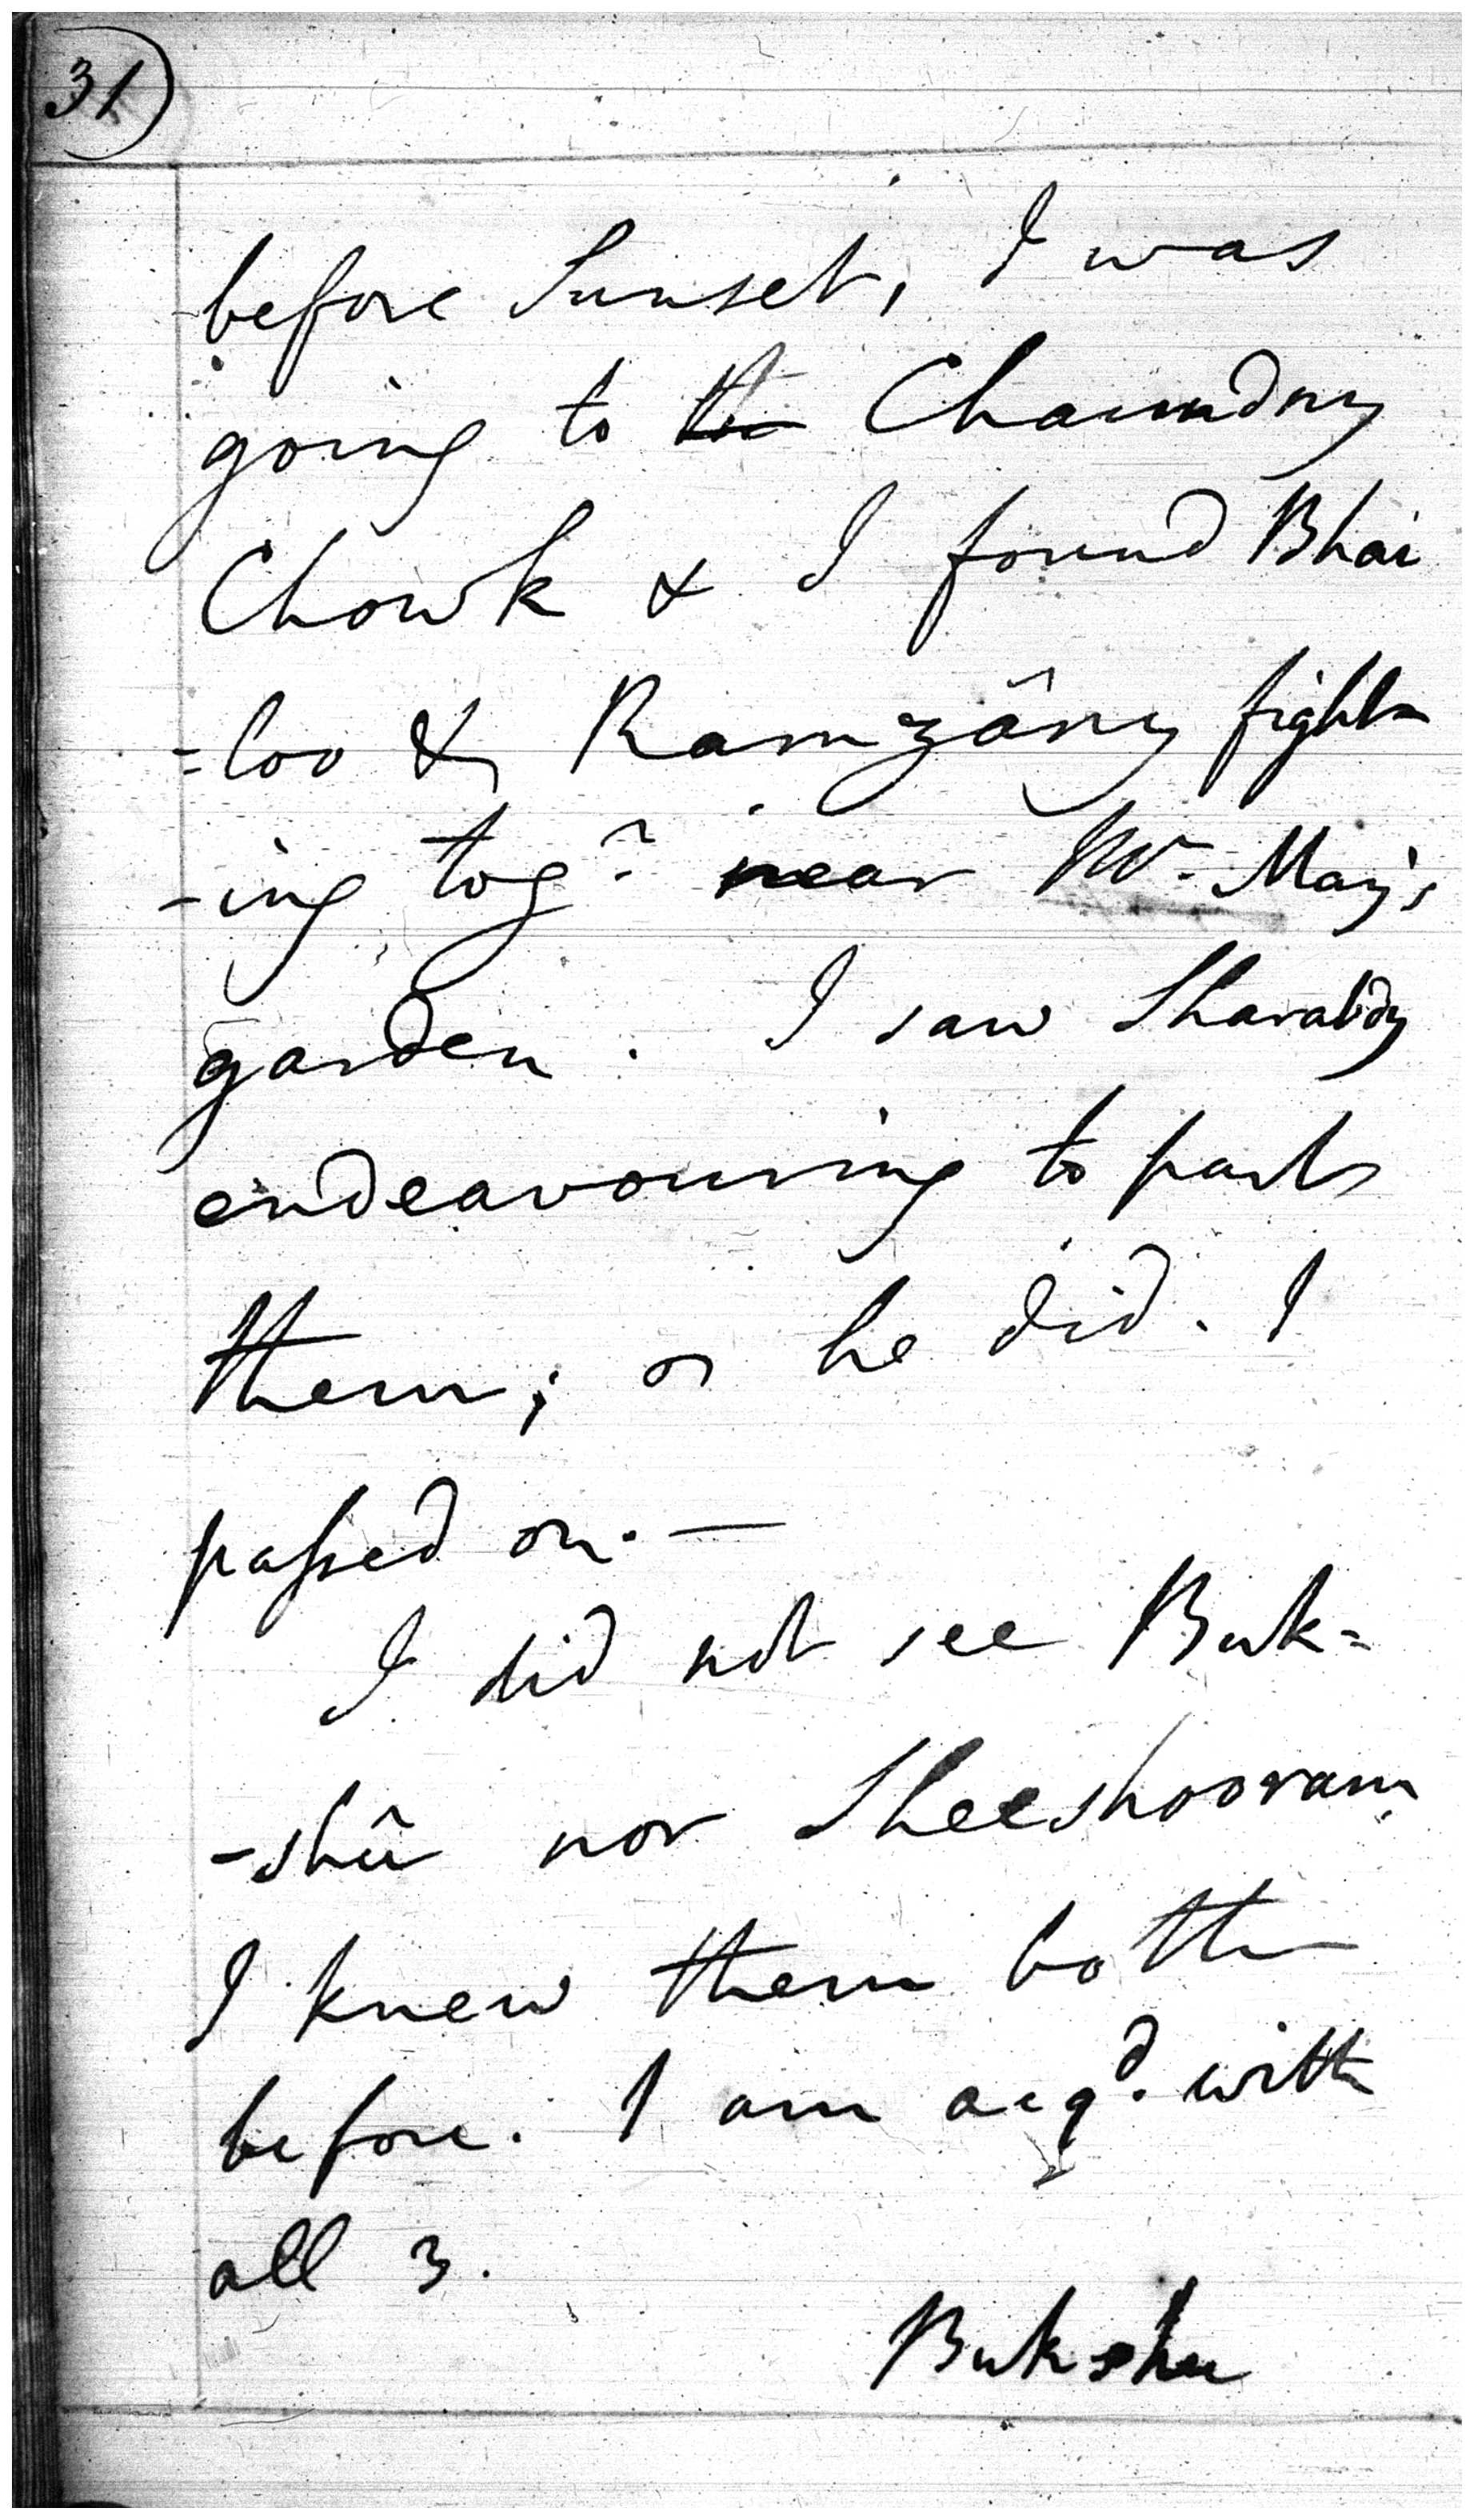 31
before Sunset, I was
going to the Chaundny
Chowk & I found Bhai
=loo & Ramzâny fight=
-ing tog.r near Mr. May's
garden. I saw Sharabdy
endeavouring to part
them; & he did. I
passed on. —
I did not see Buk=
-shû nor Sheeshooram
I knew them both
before. I am acqd. with
all 3.
Bukshu